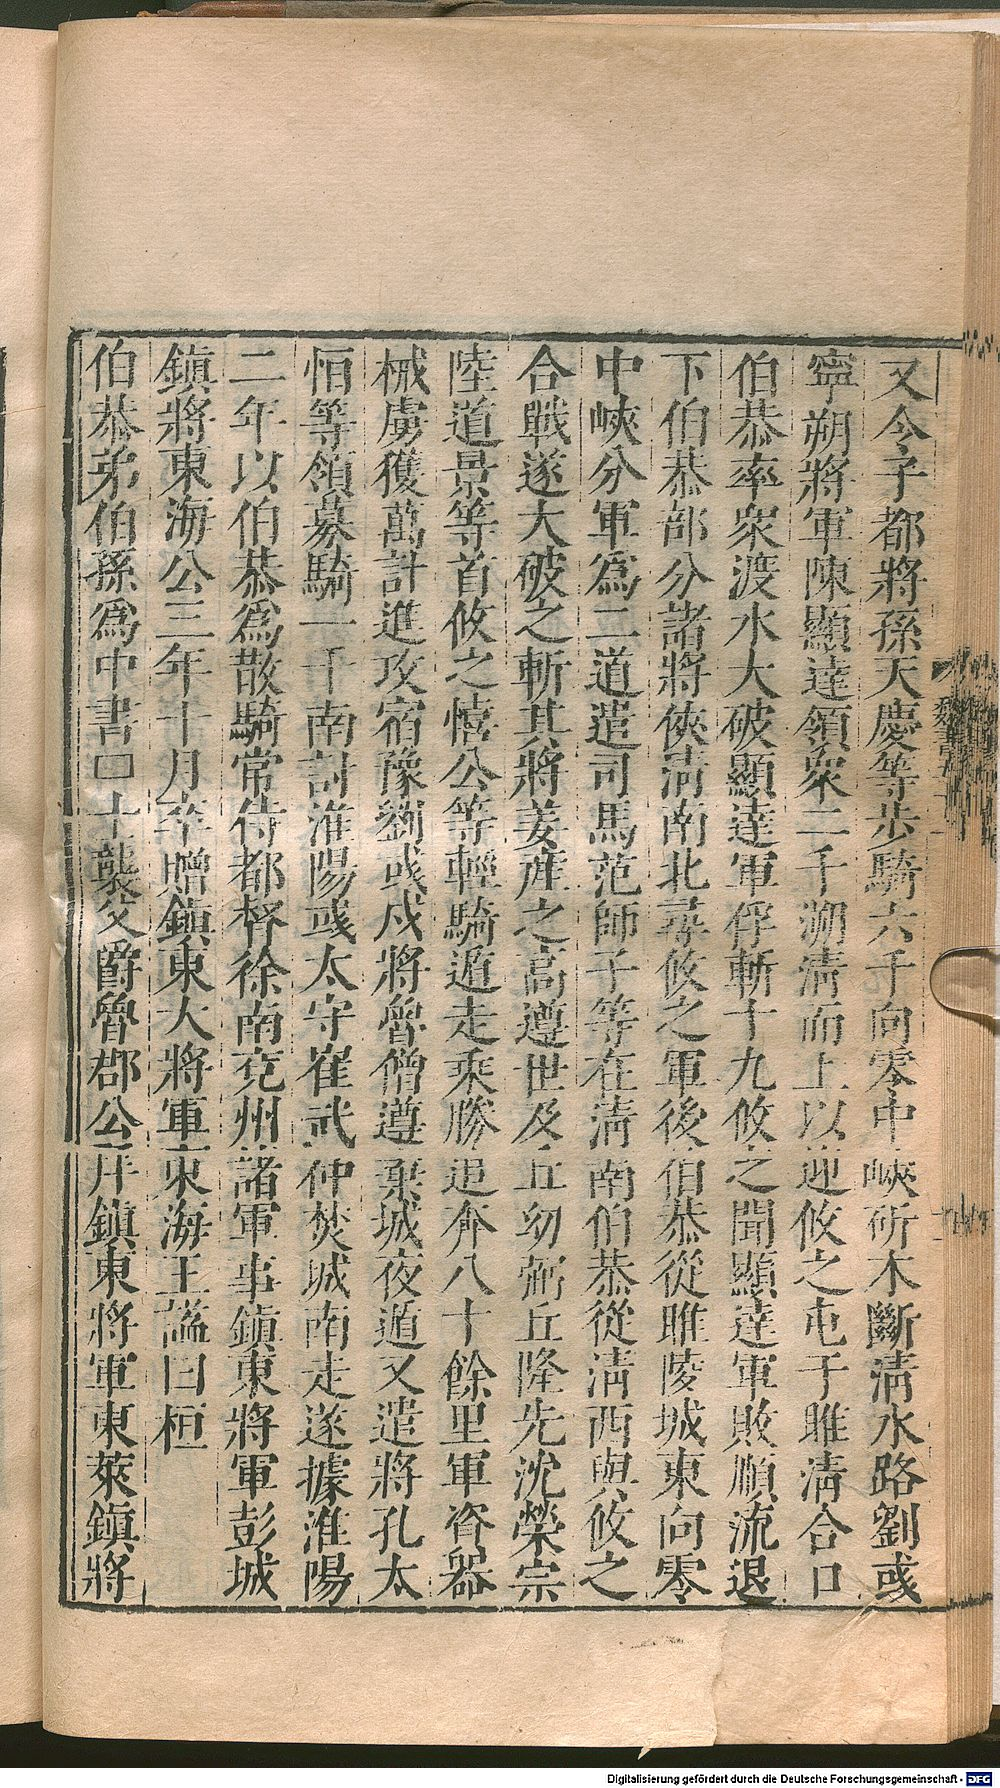 又令子都將孫天慶等步騎六千向零中峽斫木斷淸水路劉彧
寧朔將軍陳顯達領衆二千溯淸而上以迎攸之屯于睢淸合口
伯恭率衆渡水大破顯達軍俘斬十九攸之聞顯達軍敗順流退
下伯恭部分諸將俠淸南北尋攸之軍後伯恭從睢陵城東向零
中峽分軍爲二道遣司馬范師子等在淸南伯恭從淸西與攸之
合戰遂大破之斬其將姜產之高遵世及丘幼弼丘隆先沈榮宗
陸道景等首攸之憘公等輕騎遁走乘勝追奔八十餘里軍資器
械虜獲萬計進攻宿豫劉彧戍將魯僧遵棄城夜遁又遣將孔太
恒等領募騎一千南討淮陽彧太守崔武仲焚城南走遂據淮陽
二年以伯恭爲散騎常侍都督徐南兗州諸軍事鎭東將軍彭城
鎭將東海公三年十月卒贈鎭東大將軍東海王諡曰桓
伯恭弟伯孫爲中書士襲父爵魯郡公拜鎭東將軍東萊鎭將
魏書
Digitalisierung gefördert durch die Deutsche Forschungsgemeinschaft - DFG